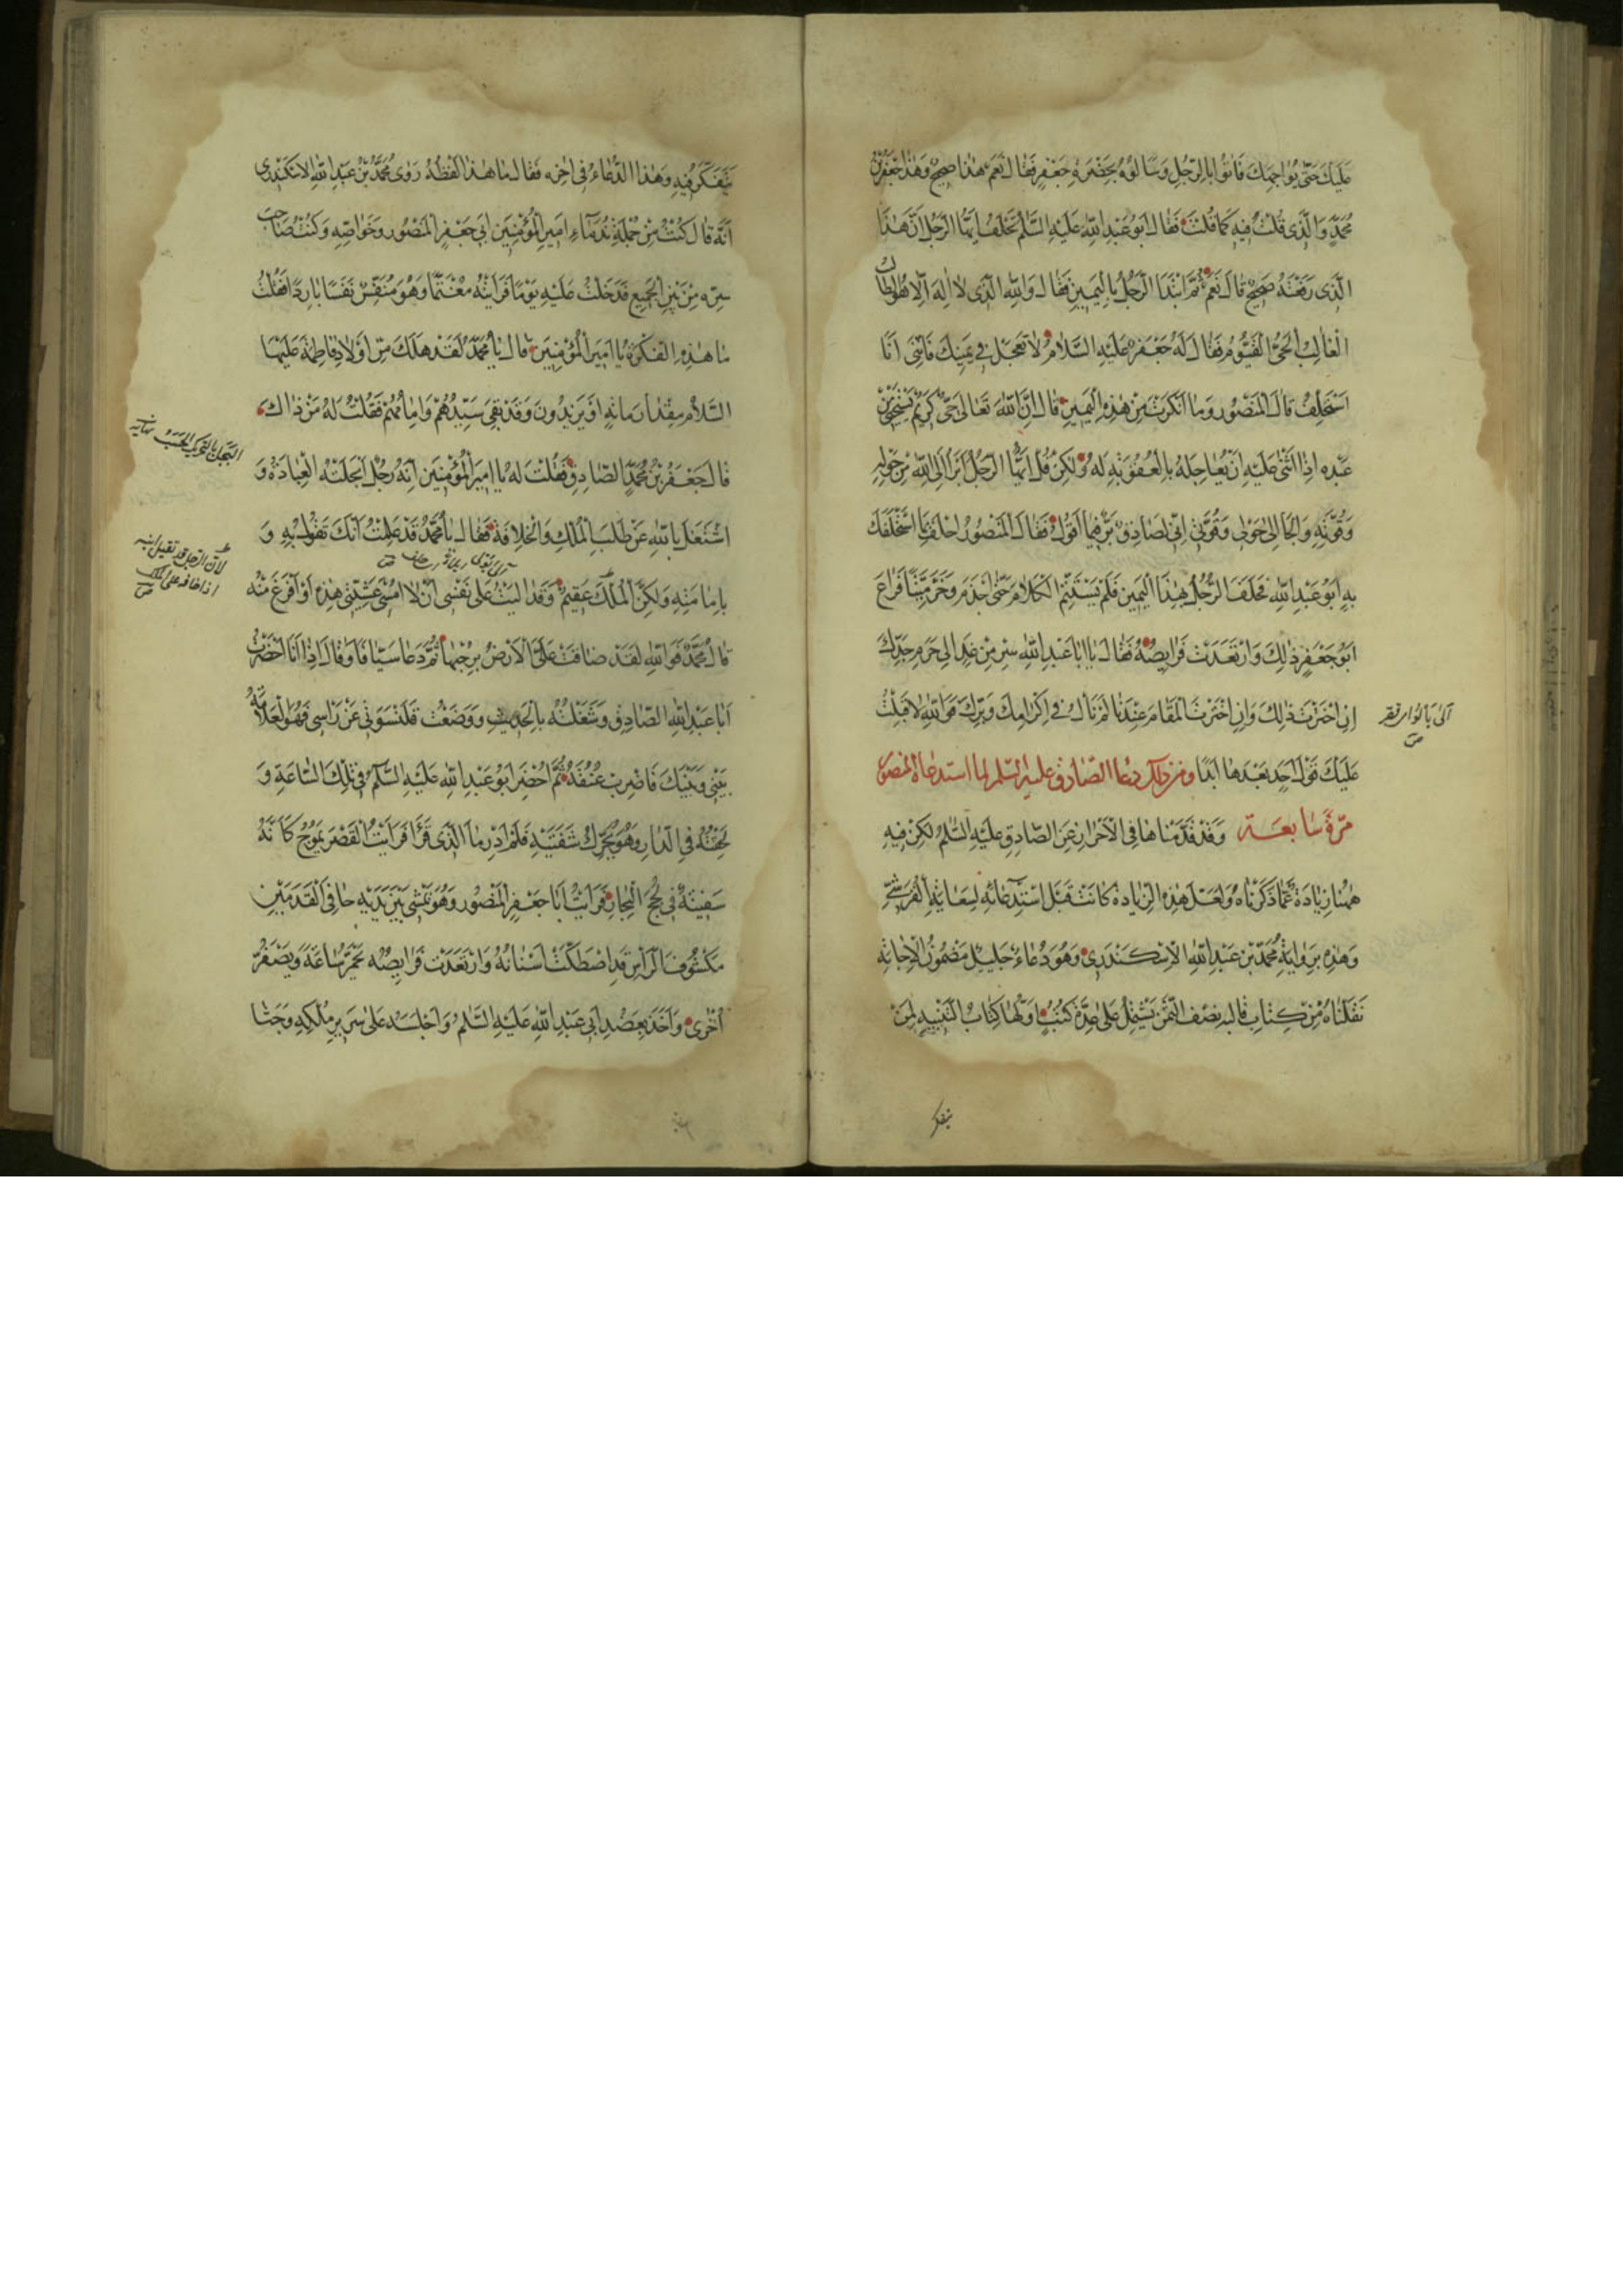 عَلَيْكَ حَتّى يُواجِهَكَ فَاَتَوْا بِالرَّجُلِ وَسَاَلُوهُ بِحَضْرَةِ جَعْفَرٍ فَقالَ نَعَمْ هٰذا صَحيحٌ وَهٰذا جَعْفَرُ بْنُ
مُحَمَّدٍ وَالَّذى قُلْتُ فيهِ كَما قُلْتُ فَقالَ اَبُو عَبْدِ اللّٰهِ عَلَيْهِ السَّلٰمُ تَحْلِفُ اَيُّهَا الرَّجُلُ اَنَّ هٰذَا
الَّذى رَفَعْتَهُ صَحيحٌ قالَ نَعَمْ ثُمَّ ابْتَدَاَ الرَّجُلُ بِالْيَمينِ فَقالَ وَاللّٰهِ الَّذى لا اِلٰهَ اِلّا هُوَ الطّالِبُ
الْغالِبُ الْحَىُّ الْقَيُّومُ فَقالَ لَهُ جَعْفَرٌ عَلَيْهِ السَّلامُ لا تَعْجَلْ فى يَمينِكَ فَاِنَّنى اَنَا
اَسْتَحْلِفُ قالَ الْمَنْصُورُ وَما اَنْكَرْتَ مِنْ هٰذِهِ الْيَمينِ قالَ اِنَّ اللّٰهَ تَعالى حَىٌّ كَريمٌ يَسْتَحْيى مِنْ
عَبْدِهِ اِذا اَثْنى عَلَيْهِ اَنْ يُعاجِلَهُ بِالْعُقُوبَةِ لَهُ وَلٰكِنْ قُلْ اَيُّهَا الرَّجُلُ اَبْرَاُ اِلَى اللّٰهِ مِنْ حَوْلِهِ
وَقُوَّتِهِ وَاَلْجَاُ اِلى حَوْلى وَقُوَّتى اِنّى لَصادِقٌ بَرٌّ فيما اَقُولُ فَقالَ الْمَنْصُورُ احْلِفْ بِما اسْتَحْلَفَكَ
بِهِ اَبُو عَبْدِ اللّٰهِ فَحَلَفَ الرَّجُلُ بِهٰذَا الْيَمينِ فَلَمْ يَسْتَتِمَّ الْكَلامَ حَتّى اَجْذَمَ وَخَرَّ مَيِّتًا فَراعَ
اَبُو جَعْفَرٍ ذٰلِكَ وَارْتَعَدَتْ فَرايِصُهُ فَقالَ يا اَبا عَبْدِ اللّٰهِ سِرْ مِنْ غَدٍ اِلى حَرَمِ جَدِّكَ
اِنِ اخْتَرْتَ ذٰلِكَ وَاِنِ اخْتَرْتَ الْمُقامَ عِنْدَنا لَمْ نَاْلُ فى اِكْرامِكَ وَبِرِّكَ فَوَاللّٰهِ لا قَبِلْتُ
عَلَيْكَ قَوْلَ اَحَدٍ بَعْدَها اَبَدًا ومن ذلك دعاء الصّادق عليه السّلم لمّا استدعاه المنصور
مَرّةً سابعَة وَقَدْ قَدَّمْناها فِى الْاَحْرازِ عَنِ الصّادِقِ عَلَيْهِ السَّلٰمُ لٰكِنْ فيهِ
هٰهُنا زِيادَةٌ عَمّا ذَكَرْناهُ وَلَعَلَّ هٰذِهِ الزِّيادَةَ كانَتْ قَبْلَ اسْتِدْعائِهِ لِسِعايَةِ الْقُرَشِىِّ
وَهٰذِهِ بِرِوايَةِ مُحَمَّدِ بْنِ عَبْدِ اللّٰهِ الْاِسْكَنْدَرِى وَهُوَ دُعاءٌ جَليلٌ مَضْمُونُ الْاِجابَةِ
نَقَلْناهُ مِنْ كِتابٍ قالَبُهُ نِصْفُ الثُّمْنِ يَشْتَمِلُ عَلى عِدَّةِ كُتُبٍ اَوَّلُها كِتابُ التَّنْبيهِ لِمَنْ
يتفكر
يَتَفَكَّرُ فيهِ وَهٰذَا الدُّعاءُ فى اخِرِهِ فَقالَ ما هٰذا لَفْظُهُ رَوى مُحَمَّدُ بْنُ عَبْدِ اللّٰهِ الْاِسْكَنْدَرِى
اَنَّهُ قالَ كُنْتُ مِنْ جُمْلَةِ نُدَماءِ اَميرِ الْمُؤْمِنينَ اَبى جَعْفَرٍ الْمَنْصُورِ وَخَواصِّهِ وَكُنْتُ صاحِبَ
سِرِّهِ مِنْ بَيْنِ الْجَميعِ فَدَخَلْتُ عَلَيْهِ يَوْمًا فَرَاَيْتُهُ مُغْتَمًّا وَهُوَ يَتَنَفَّسُ نَفَسًا بارِدًا فَقُلْتُ
ما هٰذِهِ الْفِكْرَةُ يا اَميرَ الْمُؤْمِنينَ قالَ يا مُحَمَّدُ لَقَدْ هَلَكَ مِنْ اَوْلادِ فاطِمَةَ عَلَيْهَا
السَّلامُ مِقْدارُ مِائَةٍ اَوْ يَزيدُونَ وَقَدْ بَقِىَ سَيِّدُهُمْ وَاِمامُهُمْ فَقُلْتُ لَهُ مَنْ ذاكَ
قالَ جَعْفَرُ بْنُ مُحَمَّدٍ الصّادِقُ فَقُلْتُ لَهُ يا اَميرَ الْمُؤْمِنينَ اِنَّهُ رَجُلٌ اَنْحَلَتْهُ الْعِبادَةُ وَ
اشْتَغَلَ بِاللّٰهِ عَنْ طَلَبِ الْمُلْكِ وَالْخِلافَةِ فَقالَ يا مُحَمَّدُ قَدْ عَلِمْتُ اَنَّكَ تَقُولُ بِهِ وَ
بِاِمامَتِهِ وَلٰكِنَّ الْمُلْكَ عَقيمٌ وَقَدْ الَيْتُ عَلى نَفْسى اَنْ لا اُمْسِىَ عَشِيَّتى هٰذِهِ اَوْ اَفْرُغَ مِنْهُ
قالَ مُحَمَّدٌ فَوَاللّٰهِ لَقَدْ ضاقَتْ عَلَىَّ الْاَرْضُ بِرُحْبِها ثُمَّ دَعا سَيّافًا وَقالَ اِذا اَنَا اَحْضَرْتُ
اَبا عَبْدِ اللّٰهِ الصّادِقَ وَشَغَلْتُهُ بِالْحَديثِ وَوَضَعْتُ قَلَنْسُوَتى عَنْ رَاْسى فَهُوَ الْعَلامَةُ
بَيْنى وَبَيْنَكَ فَاضْرِبْ عُنُقَهُ ثُمَّ اُحْضِرَ اَبُو عَبْدِ اللّٰهِ عَلَيْهِ السَّلٰمُ فى تِلْكَ السّاعَةِ وَ
لَحِقْتُهُ فِى الدّارِ وَهُوَ يُحَرِّكُ شَفَتَيْهِ فَلَمْ اَدْرِ مَا الَّذى قَرَاَ فَرَاَيْتُ الْقَصْرَ يَمُوجُ كَاَنَّهُ
سَفينَةٌ فى لُجَجِ الْبِحارِ فَرَاَيْتُ اَبا جَعْفَرٍ الْمَنْصُورَ وَهُوَ يَمْشى بَيْنَ يَدَيْهِ حافِىَ الْقَدَمَيْنِ
مَكْشُوفَ الرَّاْسِ قَدِ اصْطَكَّتْ اَسْنانُهُ وَارْتَعَدَتْ فَرايِصُهُ يَحْمَرُّ ساعَةً وَيَصْفَرُّ
اُخْرى وَاَخَذَ بِعَضُدِ اَبى عَبْدِ اللّٰهِ عَلَيْهِ السَّلٰمُ وَاَجْلَسَهُ عَلى سَريرِ مُلْكِهِ وَجَثا
لان الرجل قد يقتل ابنه
اذا خافه على الملك